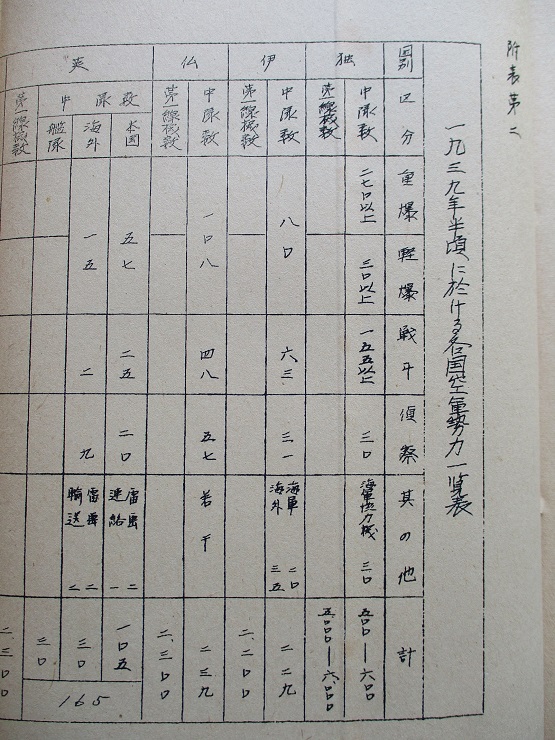 附表第二
一九三九年半頃に於ける各国空軍勢力一覧表
国別 区分 重爆 軽爆 戦斗 偵察 其の他 計
独 中隊数 二七〇以上 三〇以上 一五五以上 三〇 海軍協力機 三〇 五〇〇—六〇〇
第一線機数 五、〇〇〇—六、〇〇〇
伊 中隊数 八〇 六三 三一 海軍 二〇 海外 三五 二二九
第一線機数 二、二〇〇
仏 中隊数 一〇八 四八 五七 若干 二三九
第一線機数 二、三〇〇
英 中隊数 本国 五七 二五 二〇 雷撃 二 連絡 一 一〇五
海外 一五 二 九 雷撃 二 輸送 二 三〇
艦隊 三〇
165
第一線機数 二、三〇〇